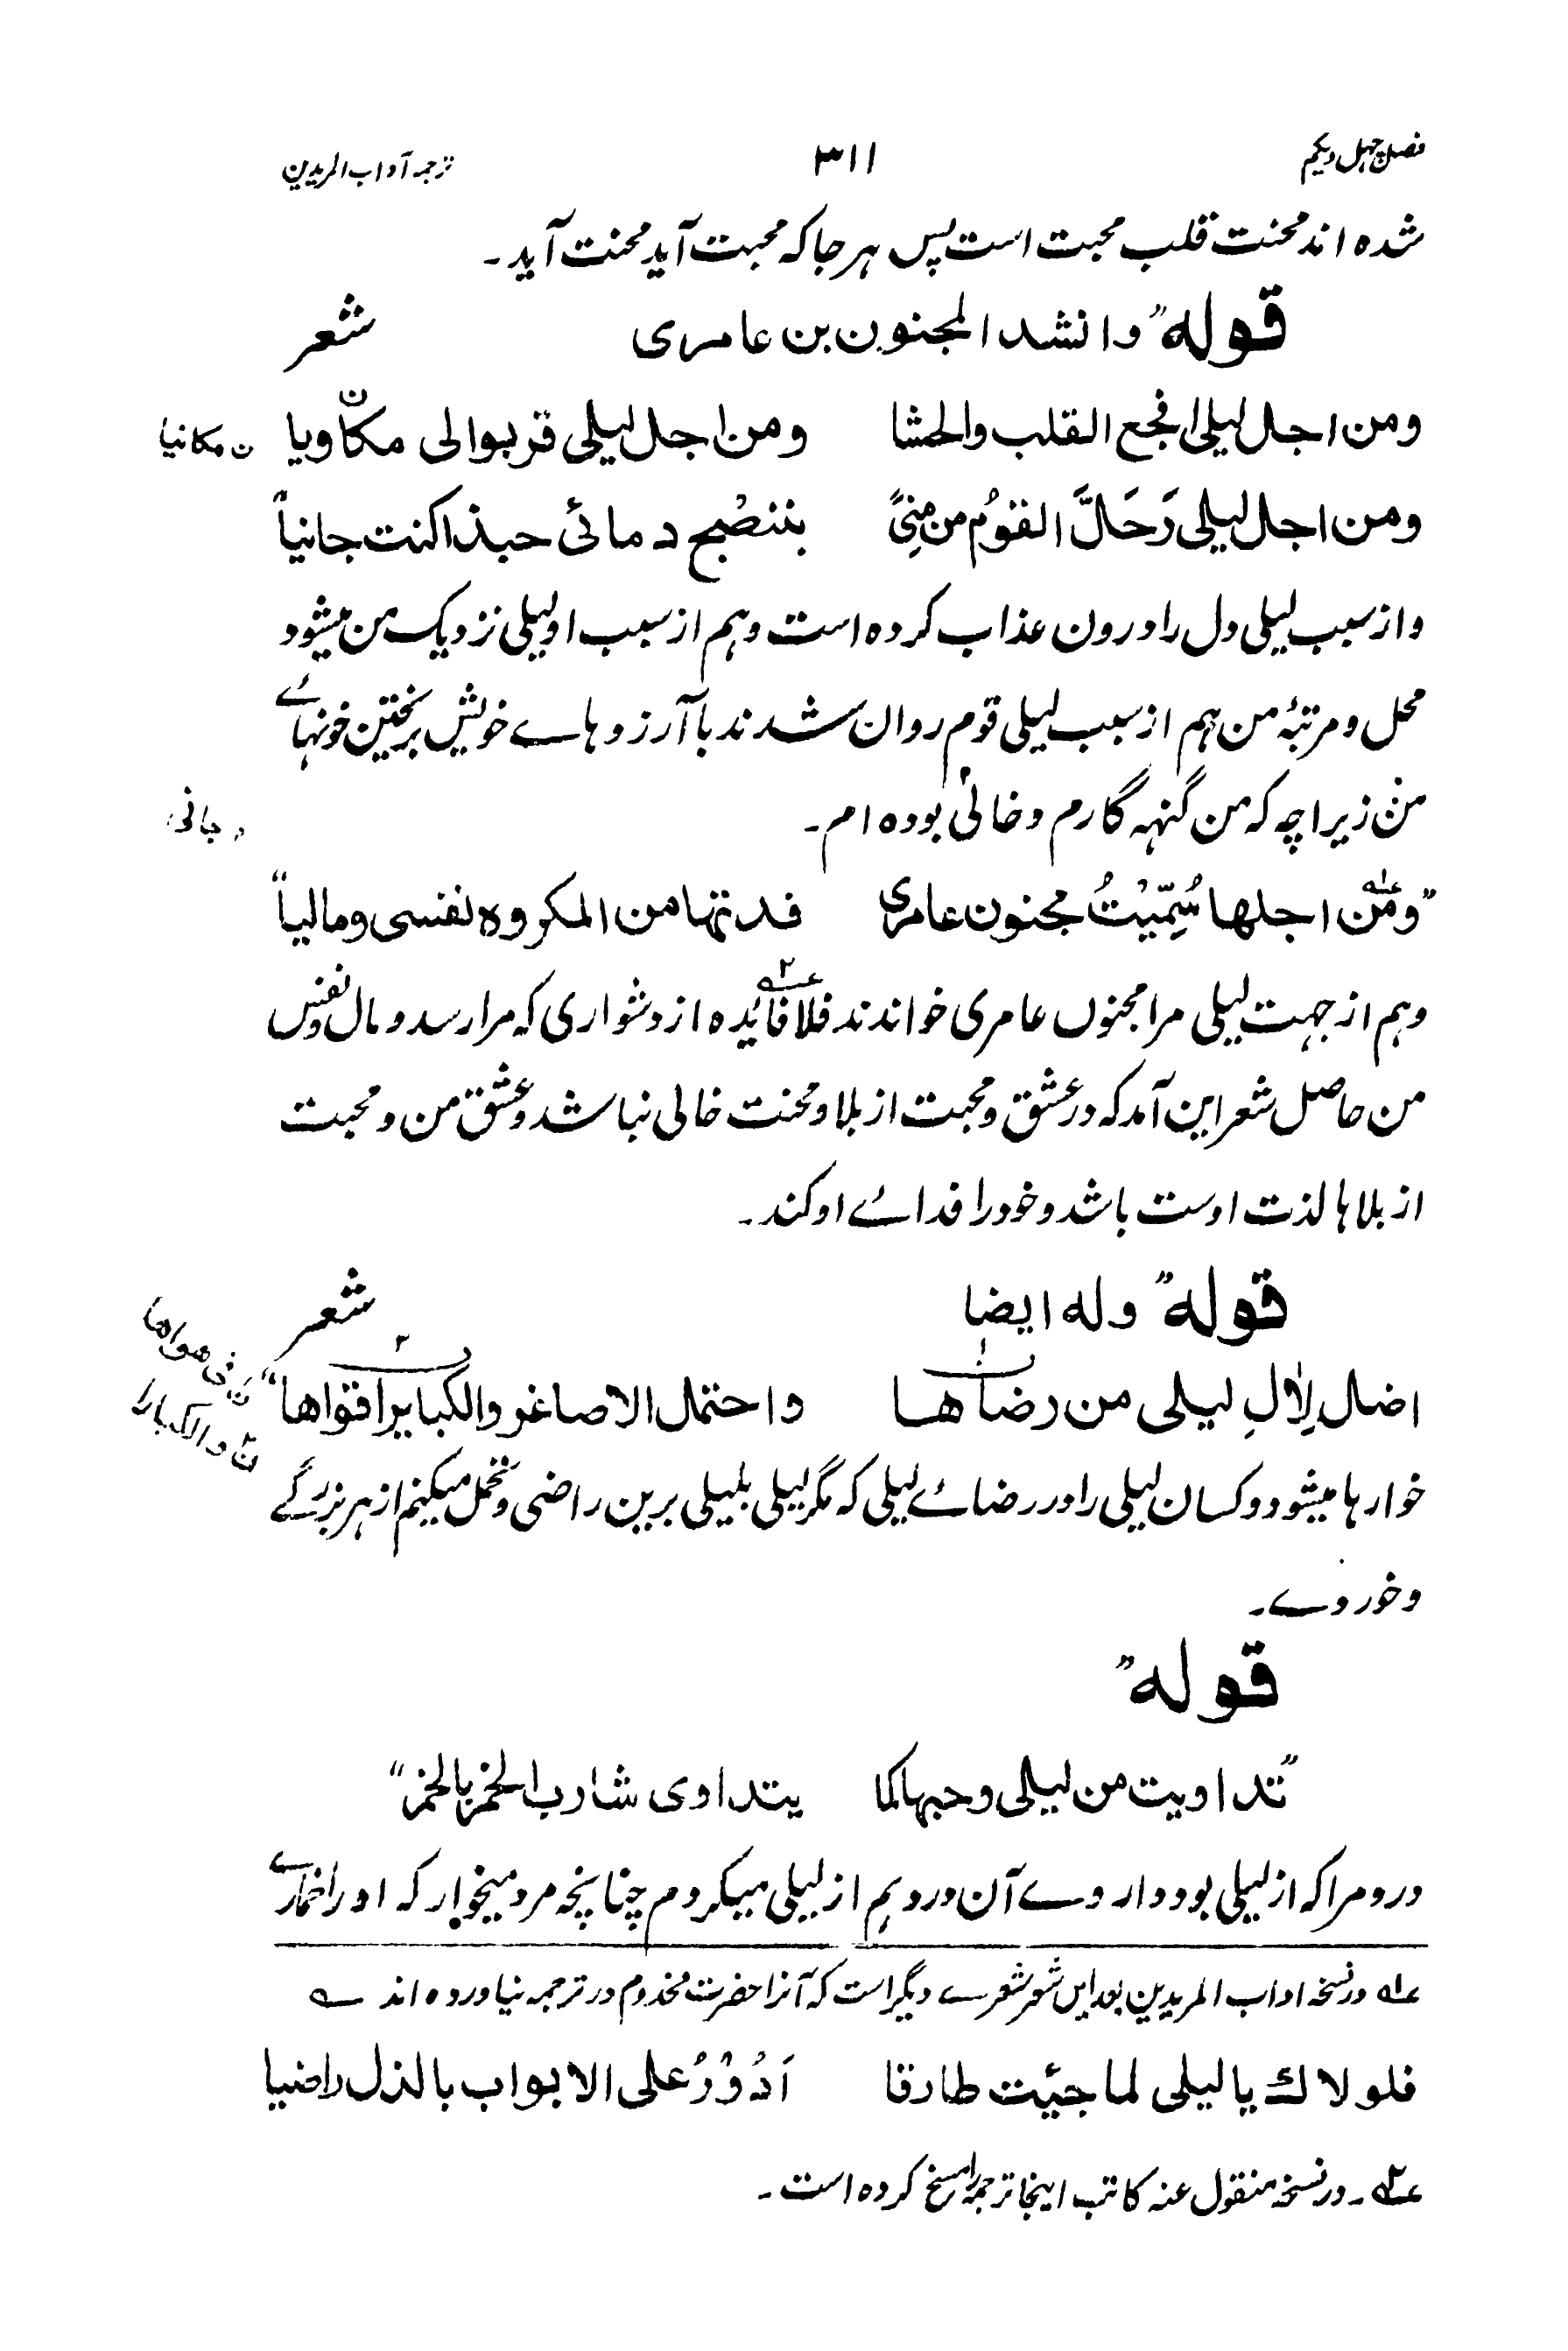 فصل چہل ویکم ۳۱۱ ترجمہ آداب المریدین
شدہ اند محنت قلب محبت است پس ہر جا کہ محبت آید محنت آید۔
قولہ" وانشد المجنون بن عامری شعر
ومن اجل لیلی انجع القلب والحشا ومن اجل لیلی قربوالی مکاویا
ن مکانیا
ومن اجل لیلی رَحَالَّ القومُ من مِنیً بننضْبح دمائی حبذا کنت جانیاً"
واز سبب لیلی دل را درون عذاب کردہ است وہم از سبب او لیلی نزدیک من میشود
محل ومرتبۂ من ہم از سبب لیلی قوم روان شدند با آرزوہاے خویش برنختین خونہاے
من زیراچہ کہ من گنہہ گارم وخائی بودہ ام۔
جانی
"ومن اجلھا سُمِّیْتُ مجنون عامری فدتھا من المکروہ نفسی ومالیا"
وہم از جہت لیلی مرا مجنوں عامری خواندند فلا فائدہ از دشواری کہ مرا رسد و مال ونفس
من حاصل شعر این آمد کہ در عشق ومحبت از بلا ومحنت خالی نباشد وعشق من ومحبت
از بلاہا لذت اوست باشد وخود را فداے او کند۔
قولہ" ولہ ایضا شعر
اضال لِاٰلِ لیلی من رضاھا واحتمل الاصاغر والکبایر اقواھا"
ن فی ھواھا
ن۲ والکبارا
خوارہا میشود وکسان لیلی را در رضاے لیلی کہ مگر لیلی بلیلی برین راضی وتحمل میکنم از ہر بزرگے
وخوردے۔
قولہ"
"تداویت من لیلی وحبھا کما یتداوی شارب الخمر بالخمر"
درد مرا کہ از لیلی بود داروے آن درد ہم از لیلی میکردم چنانچہ مرد میخوار کہ او را خمارے
عہ۱ در نسخہ اداب المریدین بعد این شعر شعرے دیگر است کہ آنرا حضرت مخدوم در ترجمہ نیاوردہ اند ؎
فلو لاك یا لیلی لما جئت طارقا اَدُوْرُ علی الابواب بالذل راضیا
عہ۲۔ در نسخہ منقول عنہ کاتب اینجا ترجمہ را مسخ کردہ است۔